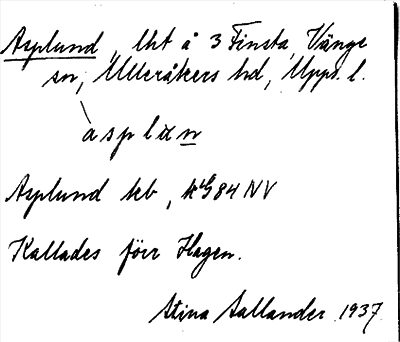 Asplund, lht å 3 Finsta, Vänge
sn, Ulleråkers hd, Upps. l.
àsplαn
Asplund kb, 84 NV
Kallades förr Hagen.
Stina Sallander 1937